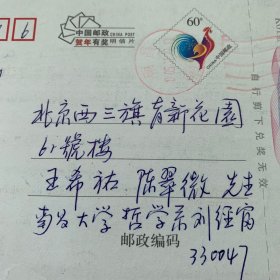 中国邮政
CHINA POST
贺年有奖 明信片
60分
6
北京西三旗育新花園
61號樓
王希祐 陳翠微 先生
南昌大学 哲学系 刘经富
邮政编码
330047
自行剪下兑奖无效